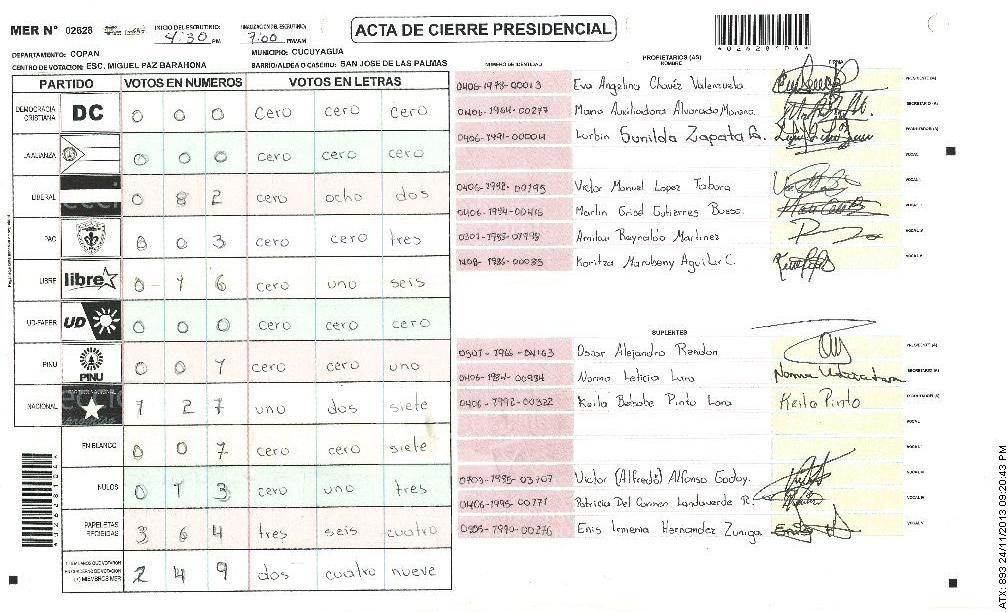 MER N° 02628
INICIO DEL ESCRUTINIO: 4:30 PM
FINALIZACION DEL ESCRUTINIO: 7:00 PM/AM
ACTA DE CIERRE PRESIDENCIAL
DEPARTAMENTO: COPAN
MUNICIPIO: CUCUYAGUA
CENTRO DE VOTACION: ESC. MIGUEL PAZ BARAHONA
BARRIO/ALDEA O CASERIO: SAN JOSE DE LAS PALMAS
PARTIDO VOTOS EN NUMEROS VOTOS EN LETRAS
DEMOCRACIA CRISTIANA DC 0 0 0 cero cero cero
LA ALIANZA 0 0 0 cero cero cero
LIBERAL 0 8 2 cero ocho dos
PAC 0 0 3 cero cero tres
LIBRE libre 0 1 6 cero uno seis
UD-FAPER UD 0 0 0 cero cero cero
PINU PINU 0 0 1 cero cero uno
NACIONAL 1 2 7 uno dos siete
EN BLANCO 0 0 7 cero cero siete
NULOS 0 1 3 cero uno tres
PAPELETAS RECIBIDAS 3 6 4 tres seis cuatro
2 4 9 dos cuatro nueve
NUMERO DE IDENTIDAD PROPIETARIOS (AS) NOMBRE FIRMA
Eva Angelina Chavéz Valenzuela PRESIDENTE (A)
0406-1964-00277 Maria Auxiliadora Alvarado Moreno SECRETARIO (A)
Lurbin Sunilda Zapata ESCRUTADOR (A)
VOCAL
0406-1992-00195 Victor Manuel Lopez Tabora
Marlin Grisel Gutierres Bueso
Amilcar Reynaldo Martinez
Karitza Marobeny Aguilar C.
SUPLENTES
Oscar Alejandro Rendon
Norma Leticia Lara
0406-1992-00322 Keila Betsabe Pinto Lara Keila Pinto
VOCAL
Victor (Alfredo) Alfonso Godoy.
0406-1995-00771 Patricia Del Carmen Landaverde R.
Enis Irmenia Hernandez Zuniga
ATX: 893 24/11/2013 09:20:43 PM